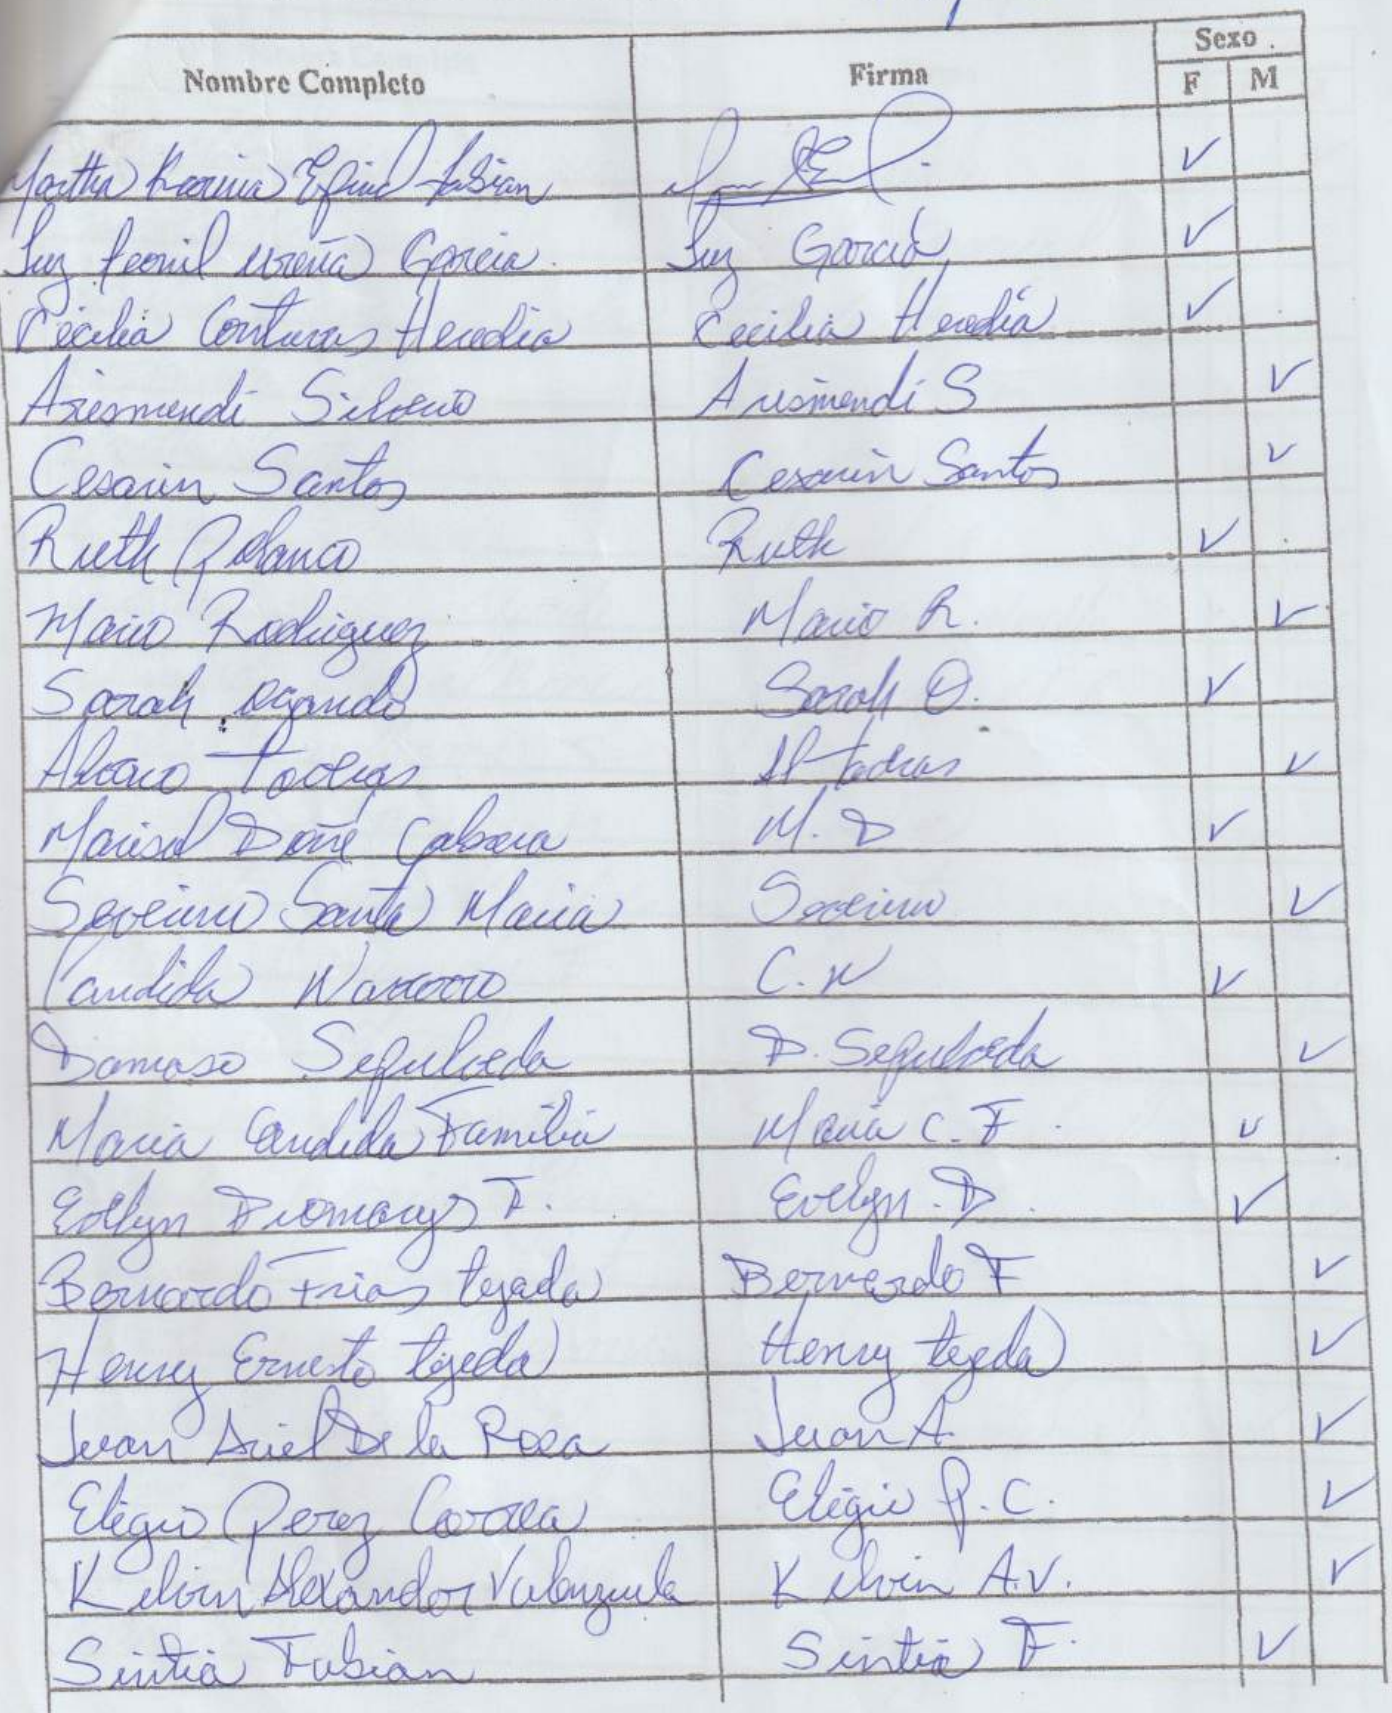 Sexo
Nombre Completo Firma F M
Martha Karina Fabian ✓
Luz Ureña Garcia Luz Garcia ✓
Cecilia Contreras Heredia Cecilia Heredia ✓
Ariesmendi Silverio Arismendi S ✓
Cesarin Santos Cesarin Santos ✓
Ruth Polanco Ruth ✓
Mario Rodriguez Mario R. ✓
Sarah Ogando Sarah O. ✓
Alvaro Taveras ✓
Marisol Doñe Cabrera M. D ✓
Severino Santa Maria Severino ✓
Candida Navarro C. N ✓
Damaso Sepulveda D. Sepulveda ✓
Maria Candida Familia Maria C. F ✓
Evelyn Diomarys F. Evelyn. D ✓
Bernardo Frias tejada Bernardo F ✓
Henry Ernesto tejeda Henry tejeda ✓
Juan Ariel De la Rosa Juan A. ✓
Eligio Perez Correa Eligio P. C. ✓
Kelvin Alexander Valenzuela Kelvin A.V. ✓
Sintia Fabian Sintia F. ✓